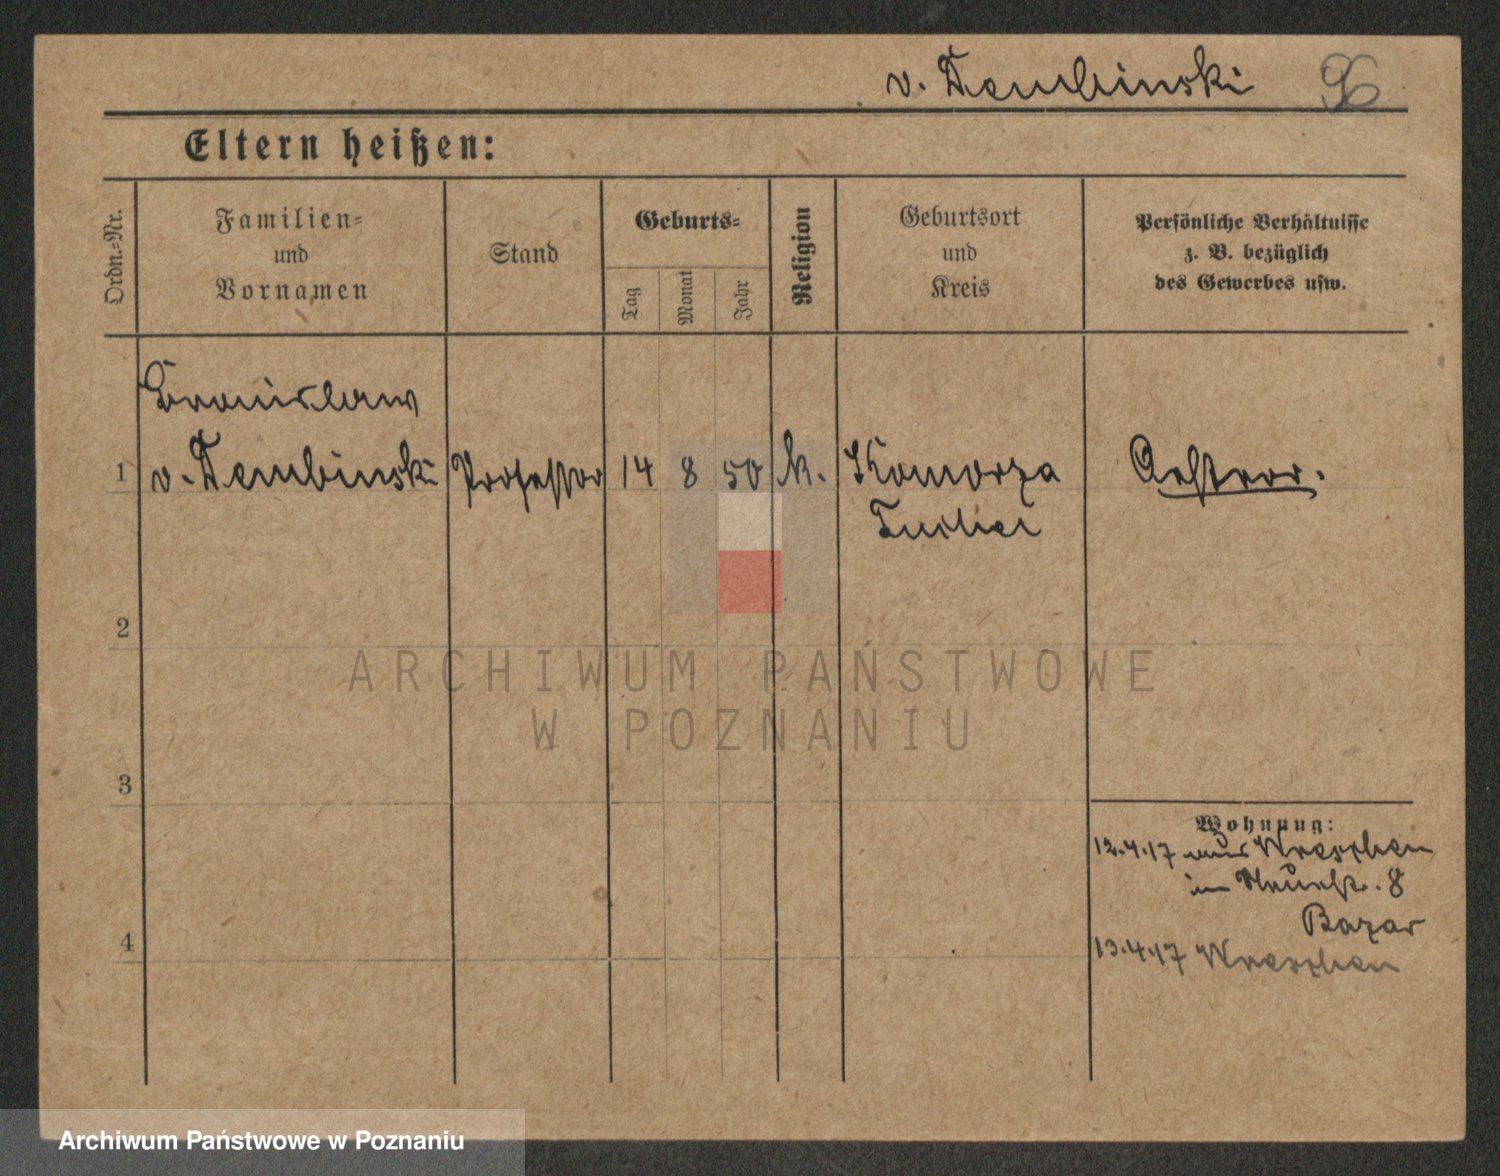 v. Dembinski 96
Eltern heißen:
Ordn.-Nr.
Familien-
und
Vornamen
Stand
Geburts-
Tag
Monat
Jahr
Religion
Geburtsort
und
Kreis
Persönliche Verhältnisse
z. B. bezüglich
des Gewerbes usw.
Bronislaw
1 v. Dembinski Professor 14 8 50 k. Komorza
Tuchel
2
ARCHIWUM PAŃSTWOWE
W POZNANIU
3
Wohnung:
12.4.17 aus Wreschen
im Neuestr. 8
Bazar
4
13.4.17 Wreschen
Archiwum Państwowe w Poznaniu